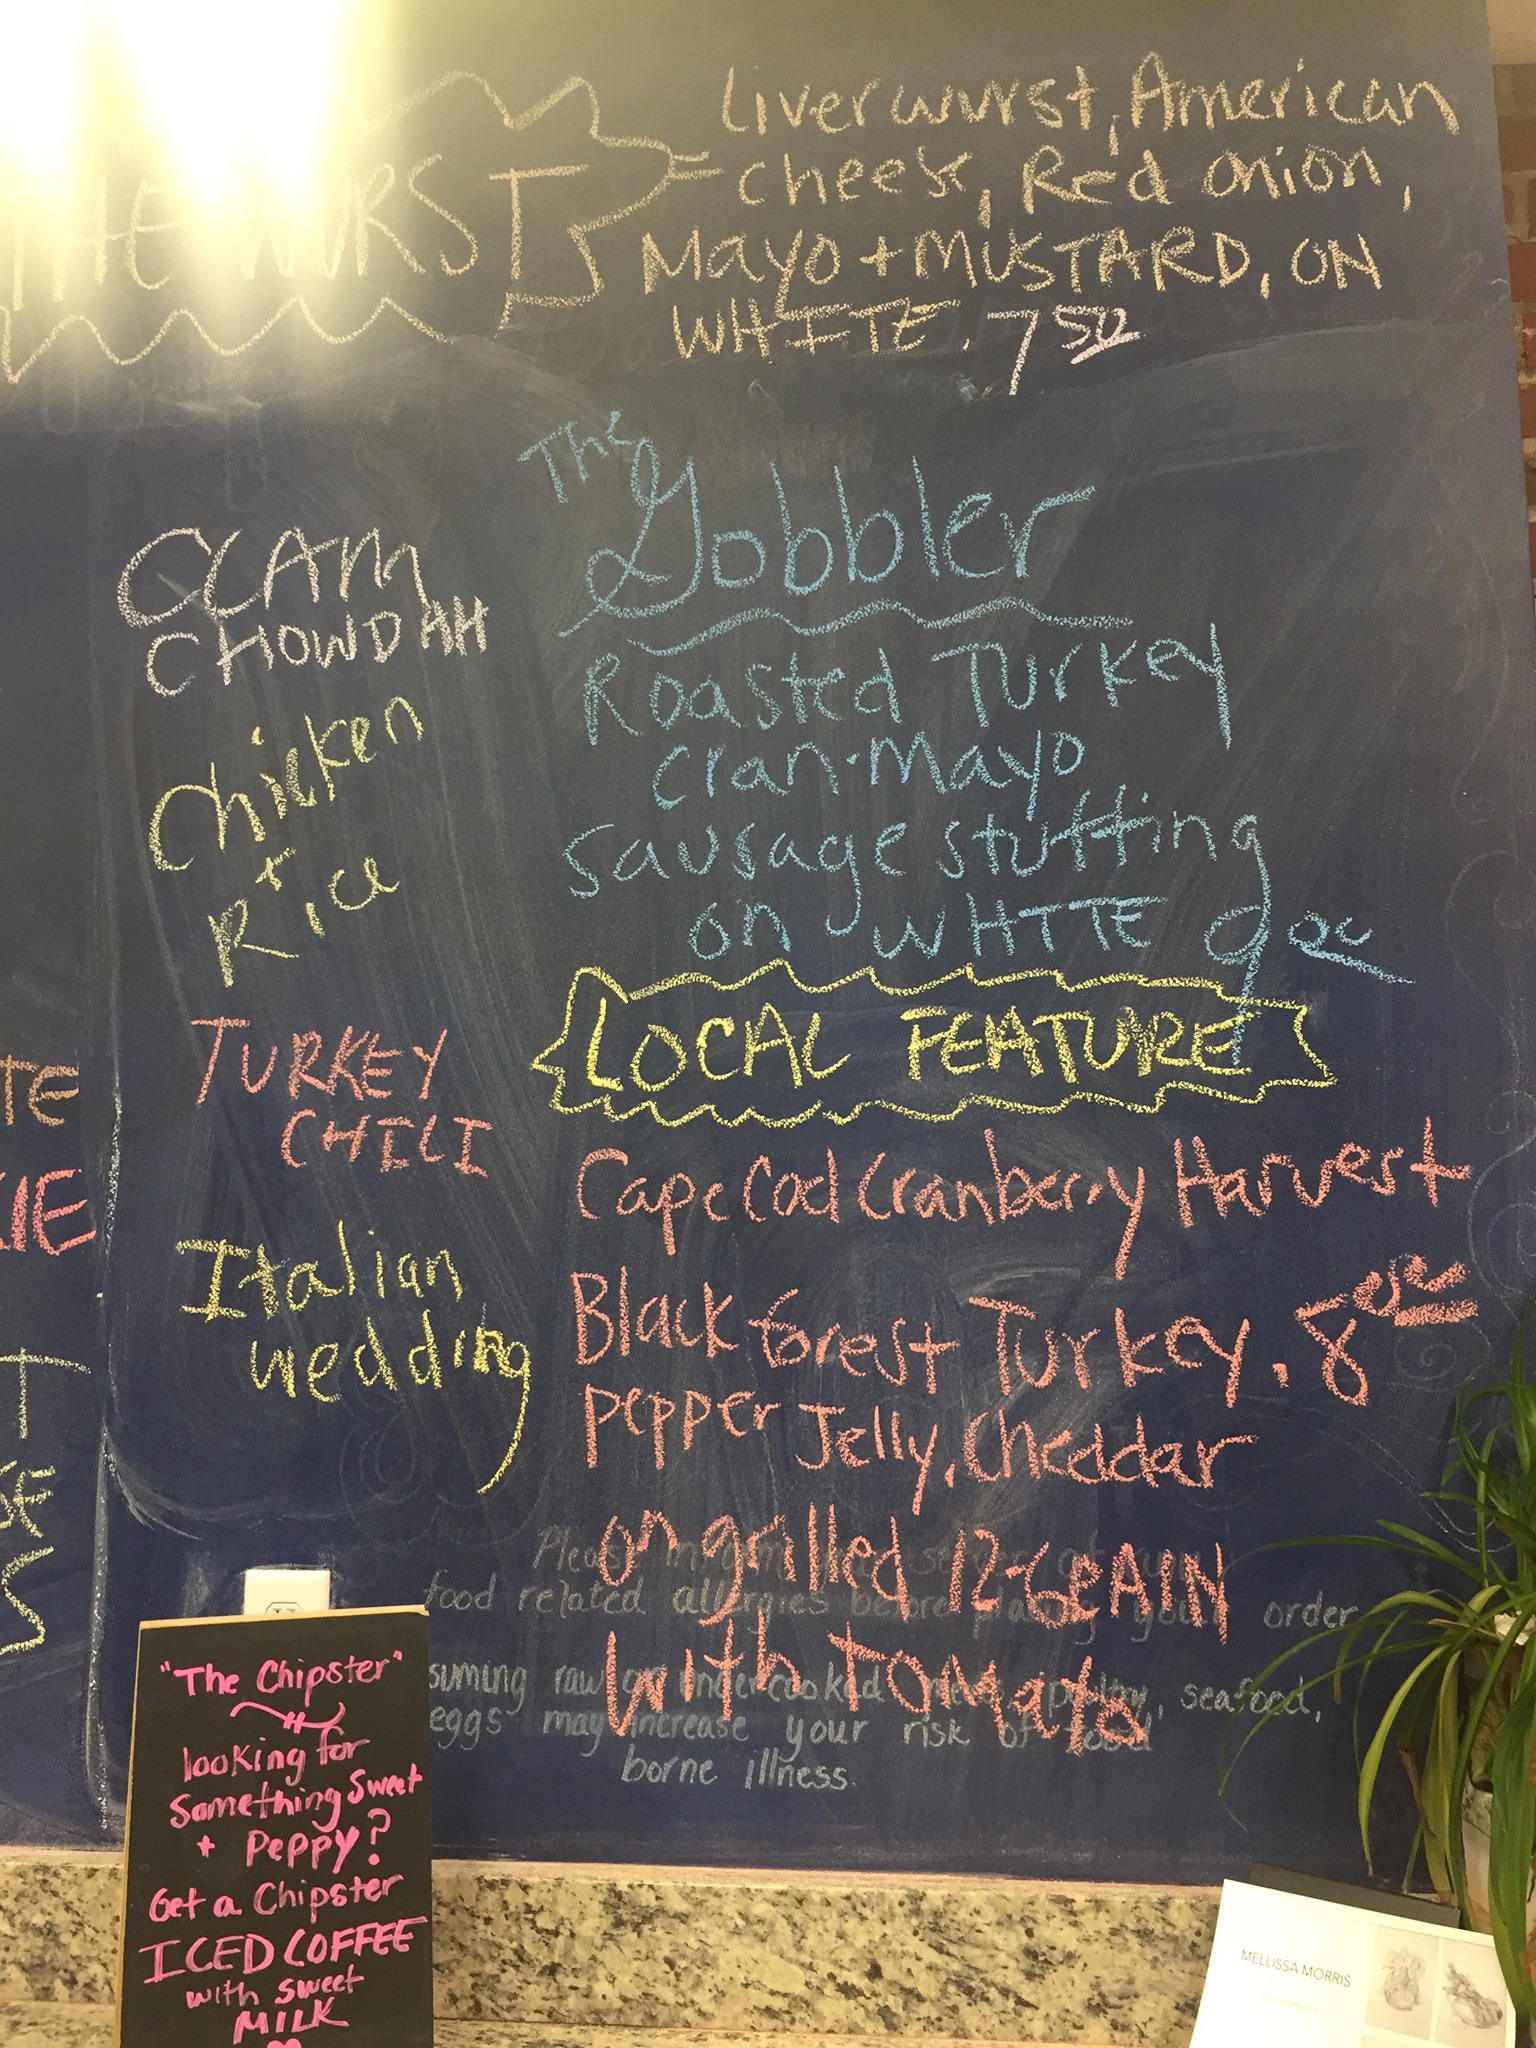 THE WURST
Liverwurst, American
cheese, Red onion,
Mayo + MUSTARD, ON
WHITE. 7 50
The
Gobbler
Roasted Turkey
Cran-Mayo
Sausage stuffing
on WHITE 9 00
CLAM
CHOWDAH
Chicken
+
Rice
TURKEY
CHILI
Italian
wedding
LOCAL FEATURE
Cape Cod Cranberry Harvest
Black forest Turkey. 8 00
Pepper Jelly, Cheddar
on grilled 12-GRAIN
with tomato
Please inform your server of any
food related allergies before placing your order
suming raw or undercooked meat, poultry, seafood,
eggs may increase your risk of food
borne illness.
TE
KIE
T
SE
S
"The Chipster"
looking for
Something Sweet
+ Peppy?
Get a Chipster
ICED COFFEE
with sweet
MILK
MELLISSA MORRIS